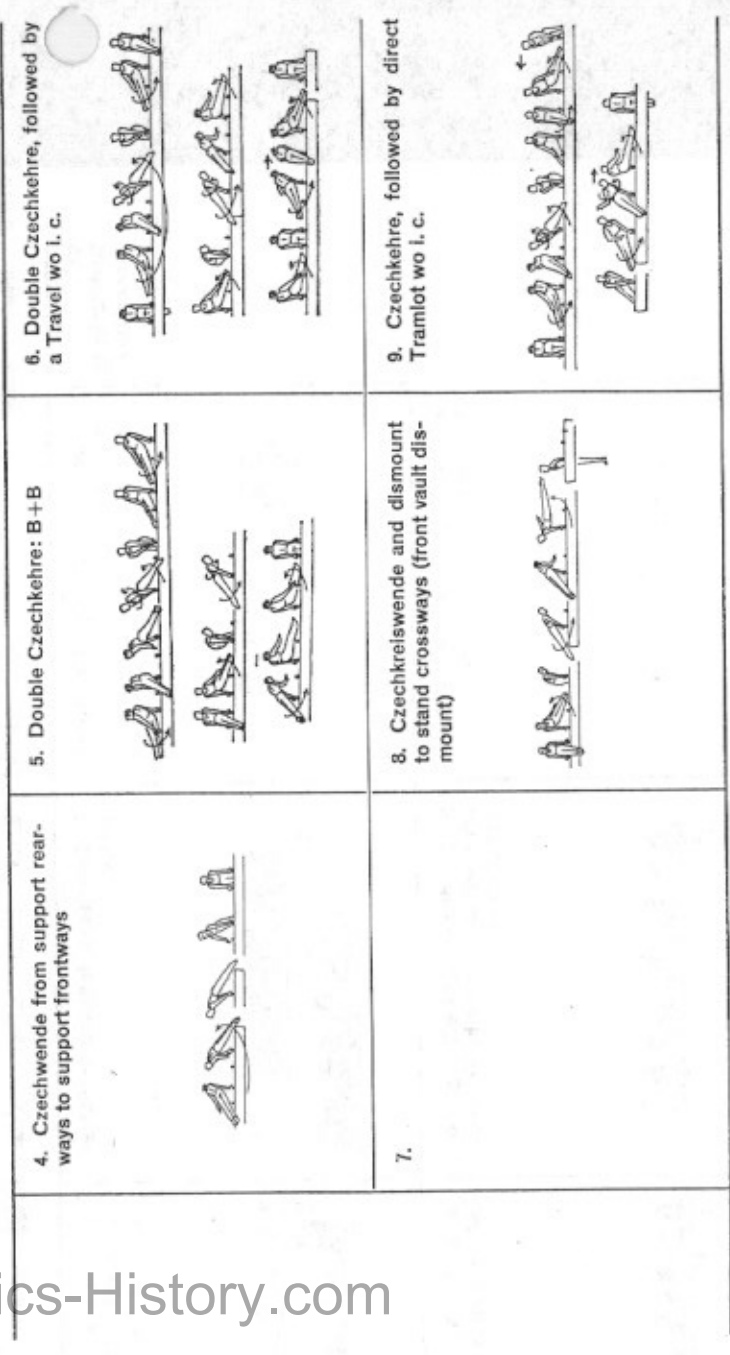 4. Czechwende from support rear-
ways to support frontways
5. Double Czechkehre: B+B
6. Double Czechkehre, followed by
a Travel wo i. c.
7.
8. Czechkreiswende and dismount
to stand crossways (front vault dis-
mount)
9. Czechkehre, followed by direct
Tramlot wo i. c.
ics-History.com